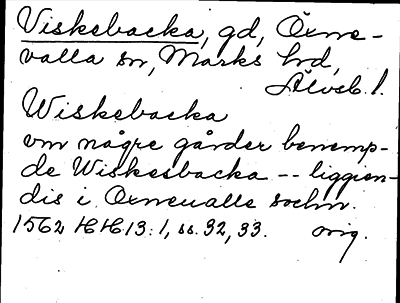 Viskebacka, gd, Örne-
valla sn, Marks hd,
Älvsb. l.
Wiskebacka
vm någre gårder benemp-
de Wiskesbacka -- liggien-
dis i Örneualle sochn.
1562 HH 13:1, ss. 32, 33. orig.